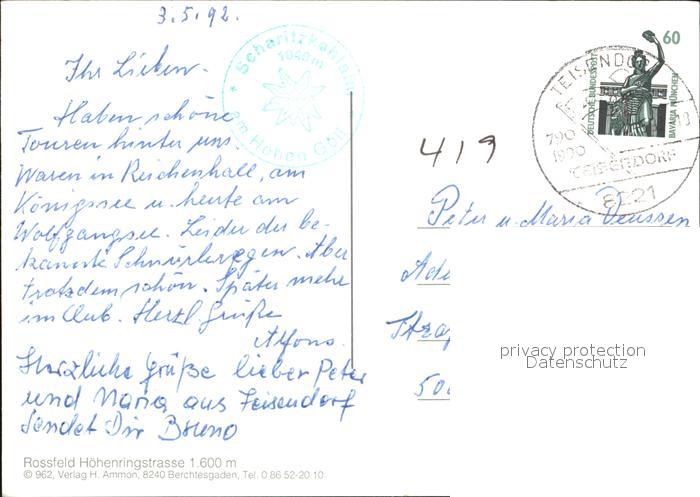 3.5.92.
Ihr Lieben.
Haben schöne
Touren hinter uns.
Waren in Reichenhall, am
Königssee u. heute am
Wolfgangsee. Leider der be-
kannte Schnürlregen. Aber
trotzdem schön. Später mehr
im Club. Herzl. Grüße
Alfons.
Herzliche Grüße lieber Peter
und Maria aus Teisendorf
sendet Dir Bruno
Rossfeld Höhenringstrasse 1.600 m
© 962, Verlag H. Ammon, 8240 Berchtesgaden, Tel. 0 86 52-20 10
* Scharitzkehlalm *
1040 m
am Hohen Göll
60
DEUTSCHE BUNDESPOST
BAVARIA MÜNCHEN
TEISENDORF
790
1990
TEISENDORF
8221
419
Peter u. Maria Deussen
privacy protection
Datenschutz